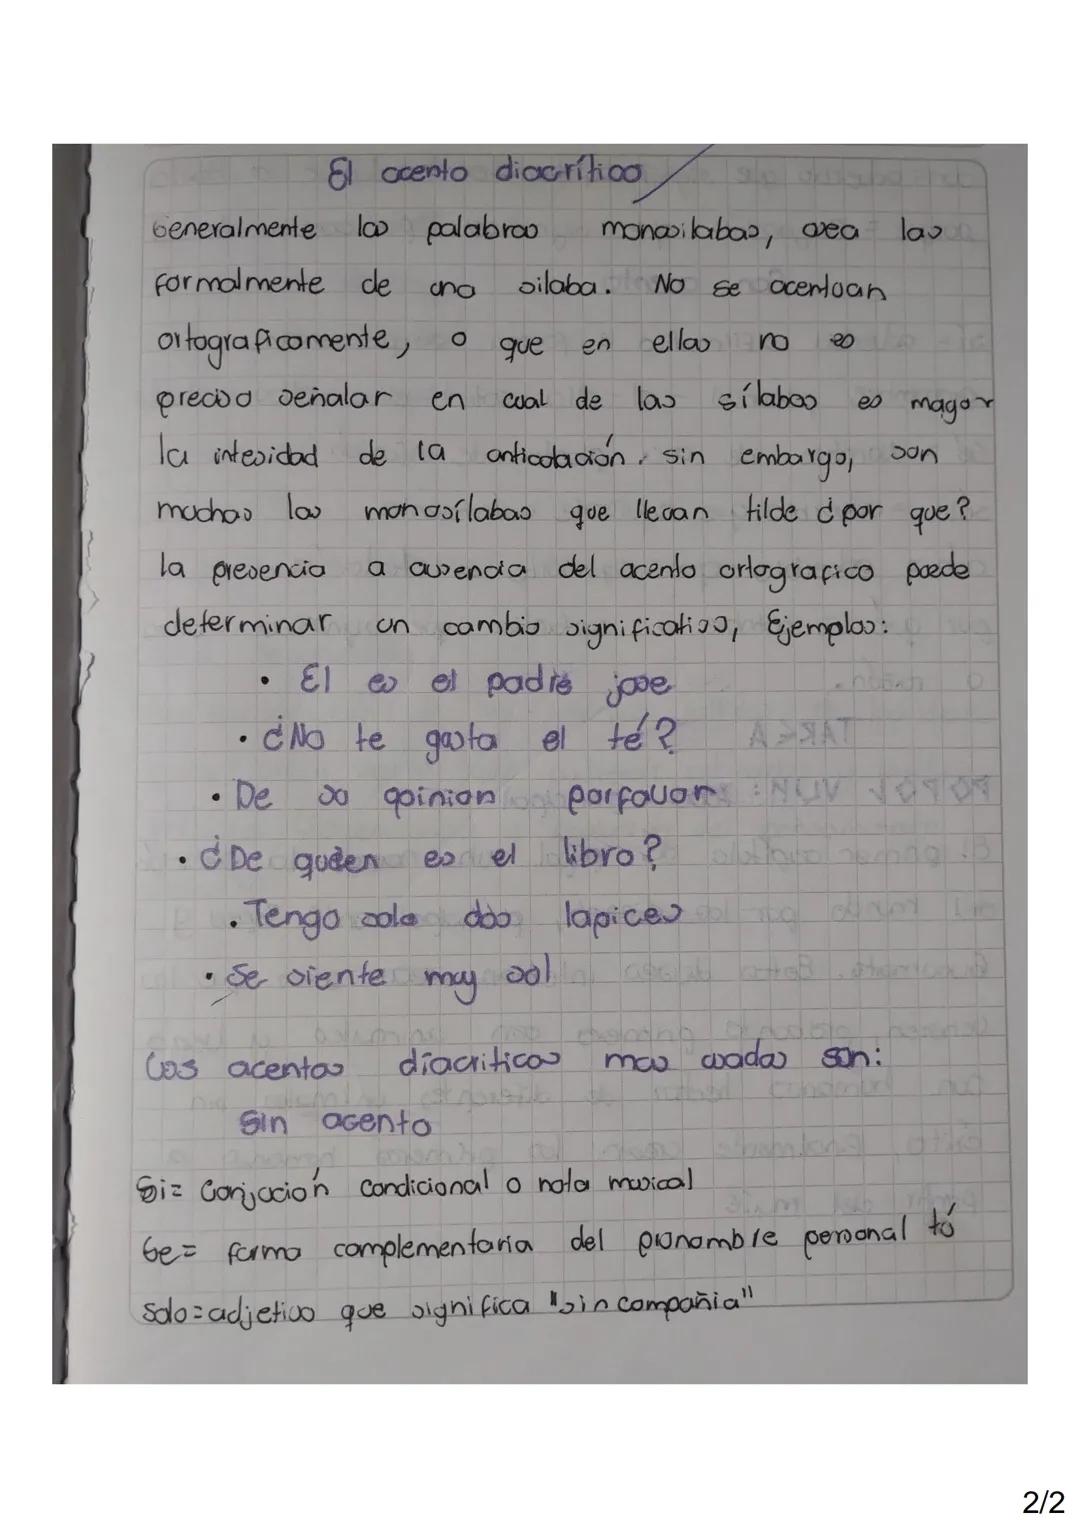 El acento diacrítico
Generalmente las palabras monasilabas, osea las
formalmente de una silaba. No se acentuan
ortograficamente, o que en ellas no es
preciso señalar en cual de las sílabas es mayor
la intesidad de la anticulación. sin embargo, son
muchas las monosílabas que llevan tilde ¿por que?
la presencia a ausencia del acento ortografico puede
determinar un cambio significativo, Ejemplos:
• El es el padre jose
• ¿No te gasta el té?
• De su opinion porfavor
• ¿De quien es el libro?
• Tengo solo dos lapices
• Se siente muy sol
Los acentos diacriticos mas usados son:
Sin acento
Si= Conjución condicional o nota musical
te= forma complementaria del pronombre personal tú
Solo=adjetivo que significa "sin compañia"
2/2